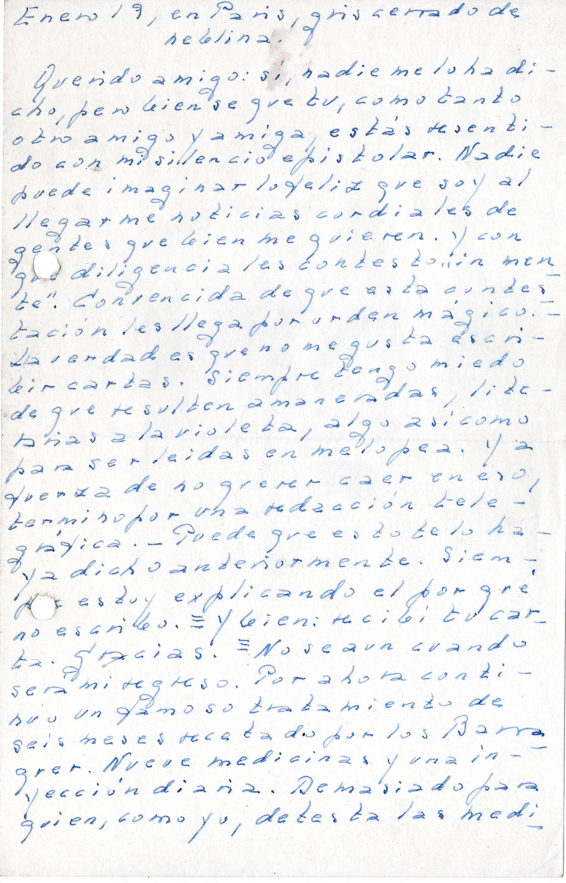 Enero 19, en Paris, gris cerrado de
neblina.
Querido amigo: sí, nadie me lo ha di-
cho, pero bien se que tu, como tanto
otro amigo y amiga, estás resenti-
do con mi silencio epistolar. Nadie
puede imaginar lo feliz que soy al
llegarme noticias cordiales de
gentes que bien me quieren. Y con
que diligencia les contesto "in men-
te". Convencida de que esta contes-
tación les llega por orden mágico. -
La verdad es que no me gusta escri-
bir cartas. Siempre tengo miedo
de que resulten amaneradas, lite-
rarias a la violeta, algo así como
para ser leidas en melopea. Y a
fuerza de no querer caer en eso,
termino por una redacción tele-
gráfica. - Puede que esto te lo ha-
ya dicho anteriormente. Siem-
pre estoy explicando el por qué
no escribo. ≡ Y bien: recibí tu car-
ta. Gracias. ≡ No se aun cuando
será mi regreso. Por ahora conti-
núo un famoso tratamiento de
seis meses recetado por los Barra
grer. Nueve medicinas y una in-
yección diaria. Demasiado para
quien, como yo, detesta las medi-